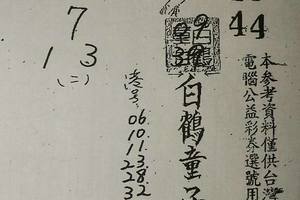 本参考資料僅供台灣
電腦公益彩券選號用
44
白鶴童子
港号
06.
10.
11.
23.
28.
32
7
1 3
(二)